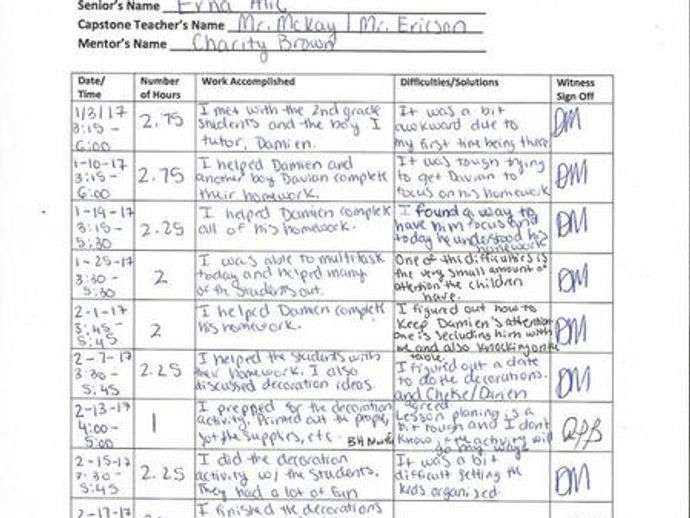 Senior's Name
Capstone Teacher's Name Mr. McKay / Mr. Ericson
Mentor's Name Charity Brown
Date/ Time
Number of Hours
Work Accomplished
Difficulties/Solutions
Witness Sign Off
1/3/17
3:15 -
6:00
2.75
I met with the 2nd grade
students and the boy I
tutor, Damien.
It was a bit
awkward due to
my first time being there
DM
1-10-17
3:15 -
6:00
2.75
I helped Damien and
another boy Davian complete
their homework.
It was tough trying
to get Davian to
focus on his homework
DM
1-19-17
3:15 -
5:30
2.25
I helped Damien complete
all of his homework.
I found a way to
have him focus and
today he understood his
homework
DM
1-25-17
3:30 -
5:30
2
I was able to multitask
today and helped many
of the students out.
One of the difficulties is
the very small amount of
attention the children
have.
DM
2-1-17
3:45 -
5:45
2
I helped Damien complete
his homework.
I figured out how to
keep Damien's attention
one is secluding him with
me and also knocking on the
table.
DM
2-7-17
3:30 -
5:45
2.25
I helped the students with
their homework. I also
discussed decoration ideas.
I figured out a date
to do the decorations.
and
agreed
DM
2-13-17
4:00 -
5:00
1
I prepped for the decoration
activity. Printed out the
got the supplies, etc
Lesson planing is a
bit rough and I dont
know if the activity will
go my way
2-15-17
3:30 -
5:45
2.25
I did the decoration
activity w/ the students.
They had a lot of fun
It was a bit
difficult getting the
kids organized.
DM
2-17-17
I finished the decorations